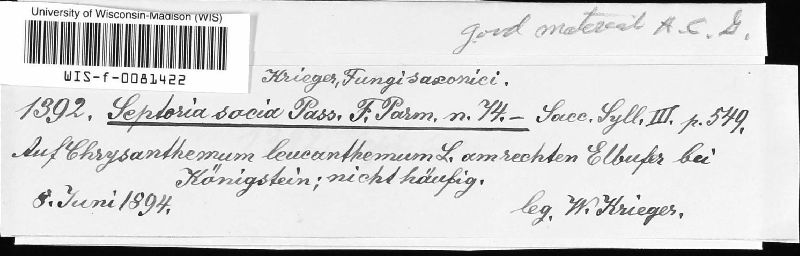 University of Wisconsin-Madison (WIS)
WIS-f-0081422
good material A.C.G.
Krieger, Fungi saxonici.
1392. Septoria socia Pass. F. Parm. n. 74. – Sacc. Syll. III. p. 549.
Auf Chrysanthemum leucanthemum L. am rechten Elbufer bei
Königstein; nicht häufig.
8. Juni 1894.
leg. W. Krieger.